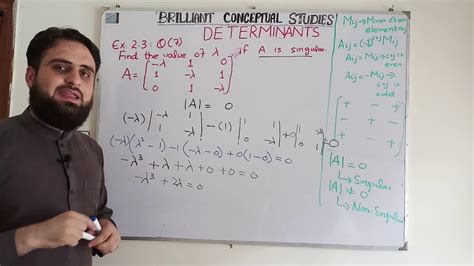 BRILLIANT CONCEPTUAL STUDIES
DETERMINANTS
Ex 2.3: Q(7)
Find the value of λ if A is singular.
A = [ -λ 1 0
1 -λ 1
0 1 -λ ]
|A| = 0
(-λ) | -λ 1 | -(1) | 1 1 | +0 | 1 -λ | = 0
(-λ)(λ² - 1) - 1(-λ - 0) + 0(1-0) = 0
-λ³ + λ + λ + 0 + 0 = 0
-λ³ + 2λ = 0
Mij → Minor of an
element aij
Aij = (-1)^i+j Mij
Aij = Mij → i+j is
even
Aij = -Mij → i+j is
odd
+ - +
- + -
+ - +
|A| = 0
↳ Singular
|A| ≠ 0
↳ Non-Singular